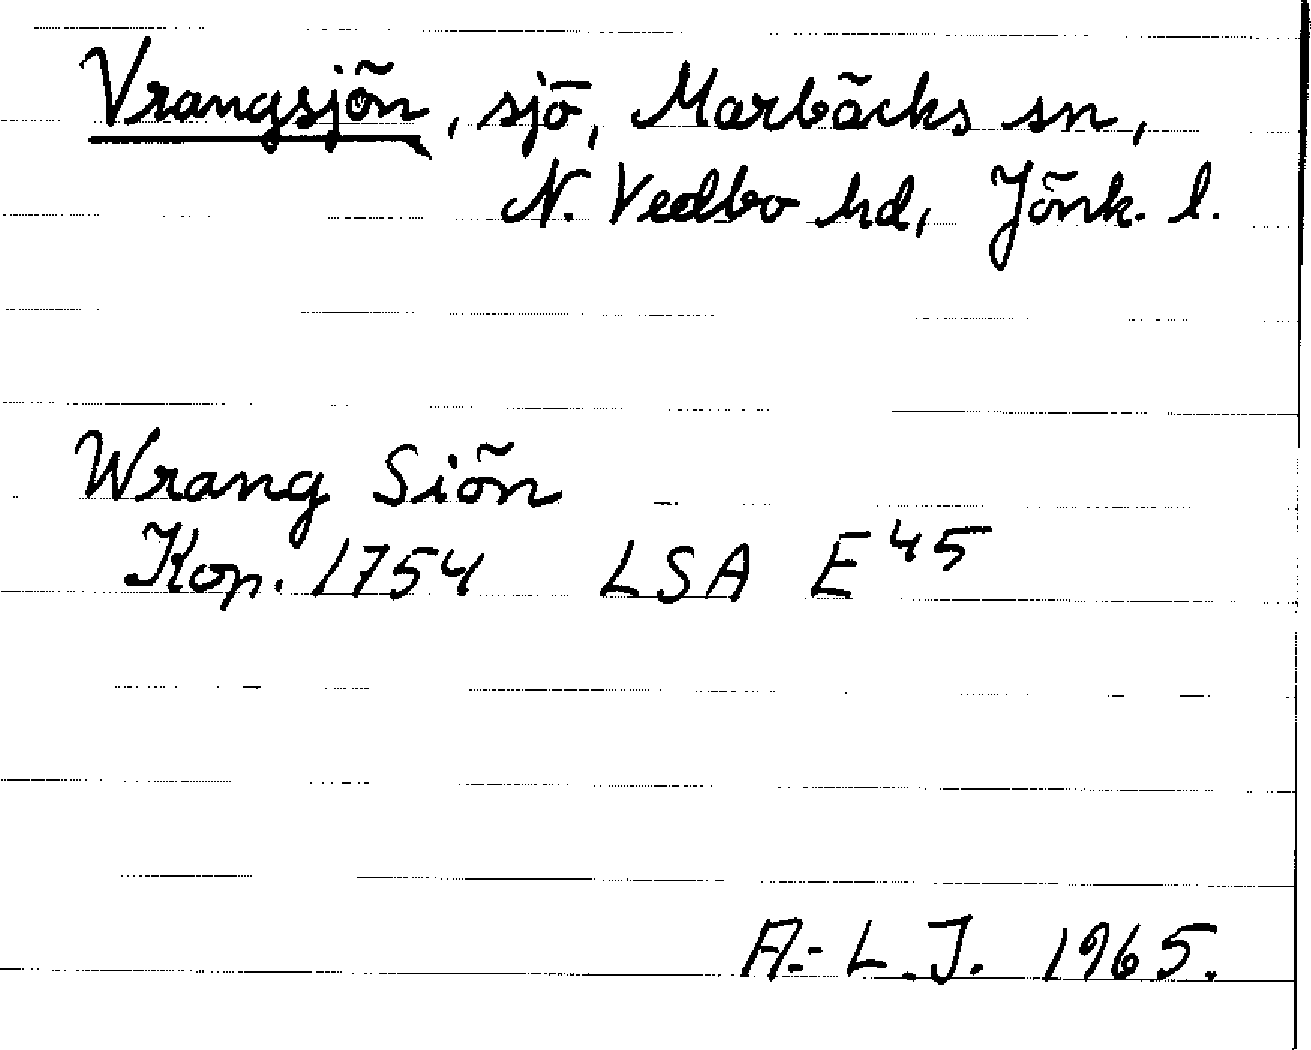 Vrangsjön, sjö, Marbäcks sn,
N. Vedbo hd, Jönk. l.
Wrang Siön
Kop. 1754 LSA E⁴⁵
A.-L.J. 1965.